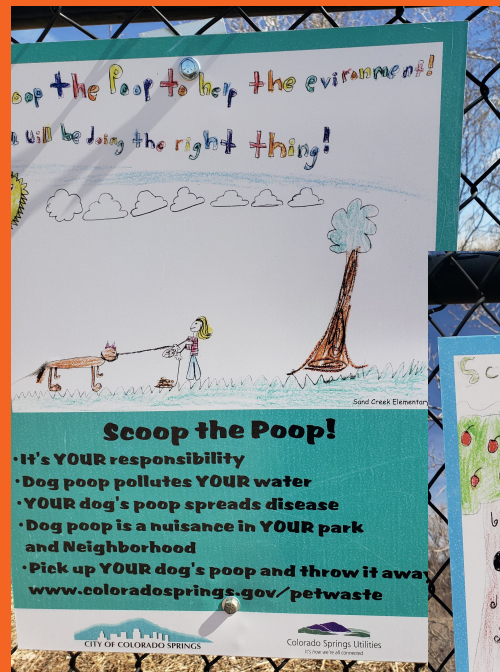 oop the Poop to help the evironment!
will be doing the right thing!
Sand Creek Elementar
Scoop the Poop!
·It's YOUR responsibility
·Dog poop pollutes YOUR water
·YOUR dog's poop spreads disease
·Dog poop is a nuisance in YOUR park
and Neighborhood
·Pick up YOUR dog's poop and throw it away
www.coloradosprings.gov/petwaste
CITY OF COLORADO SPRINGS
Colorado Springs Utilities
It's how we're all connected
Sc